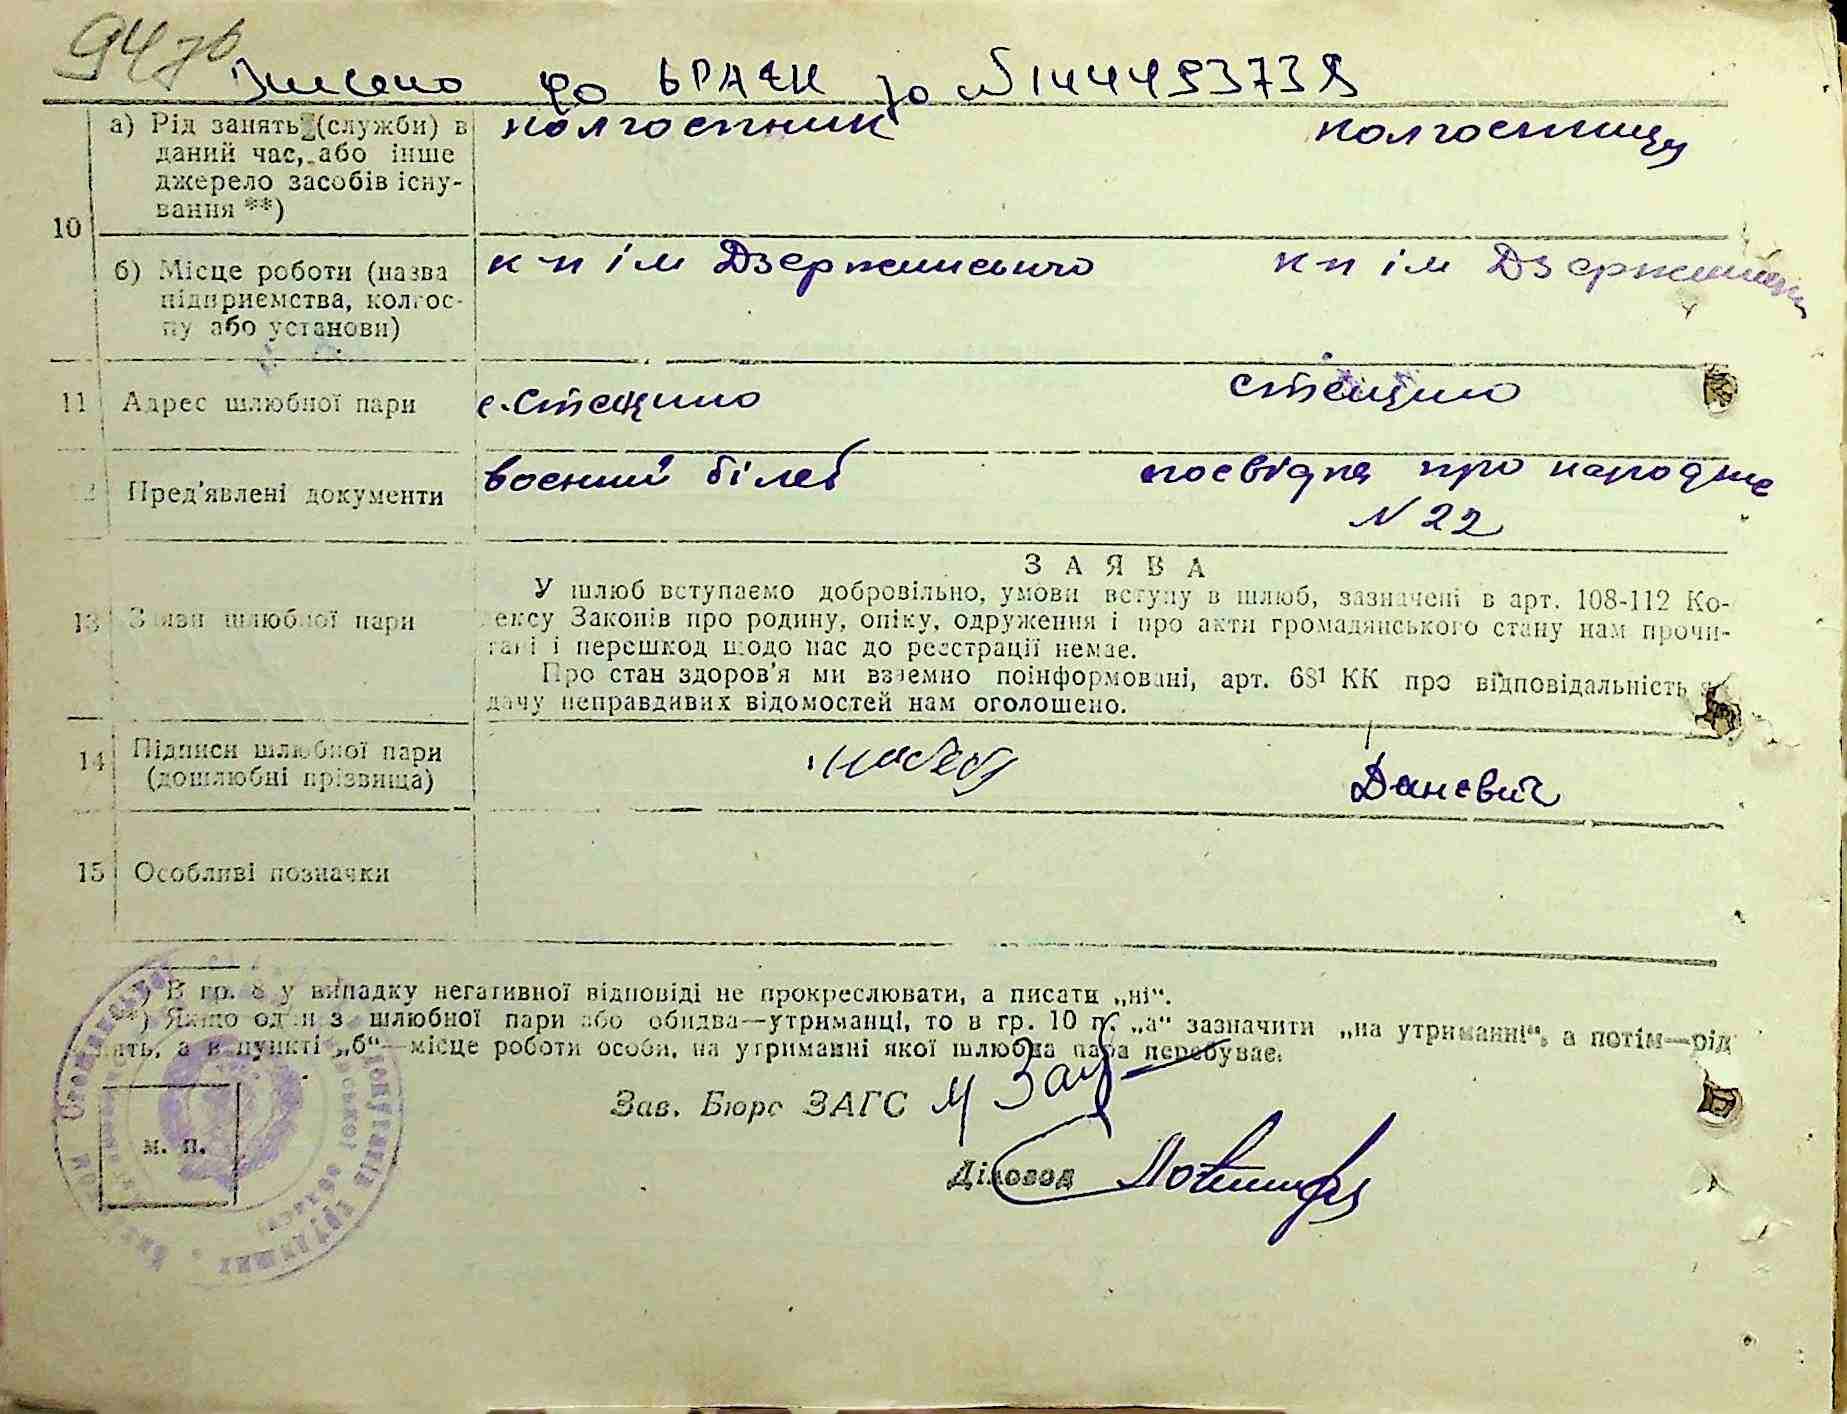 94 зв
Внесено до ДРАЦС за №144493739
10
а) Рід занять (служби) в даний час, або інше джерело засобів існування **)
колгоспник
колгоспниця
б) Місце роботи (назва підприємства, колгоспу або установи)
к-п ім Дзержинського
к-п ім Дзержинськ
11 Адрес шлюбної пари
с. Стецино
Стецино
12 Пред'явлені документи
воєнний білет
посвідка про народжне
N 22
13 Заяви шлюбної пари
ЗАЯВА
У шлюб вступаємо добровільно, умови вступу в шлюб, зазначені в арт. 108-112 Ко-
дексу Законів про родину, опіку, одруження і про акти громадянського стану нам прочи-
тані і перешкод щодо нас до реєстрації немає.
Про стан здоров'я ми взаємно поінформовані, арт. 68¹ КК про відповідальність з
дачу неправдивих відомостей нам оголошено.
14 Підписи шлюбної пари
(дошлюбні прізвища)
Даневич
15 Особливі позначки
*) В гр. 8 у випадку негативної відповіді не прокреслювати, а писати „ні“.
**) Якщо один з шлюбної пари або обидва—утриманці, то в гр. 10 п. „а“ зазначити „на утриманні“, а потім—рід
нять, а в пункті „б“—місце роботи особи, на утриманні якої шлюбна пара перебуває.
Зав. Бюро ЗАГС
Діловод
м. п.